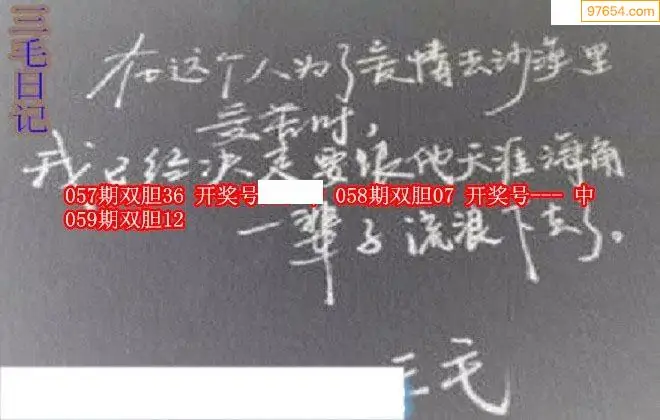 97654.com
三毛日记
在这个人为了爱情去沙漠里
受苦时,
我已经决定要跟他天涯海角
057期双胆36 开奖号 058期双胆07 开奖号--- 中
059期双胆12
一辈子流浪下去了。
三毛